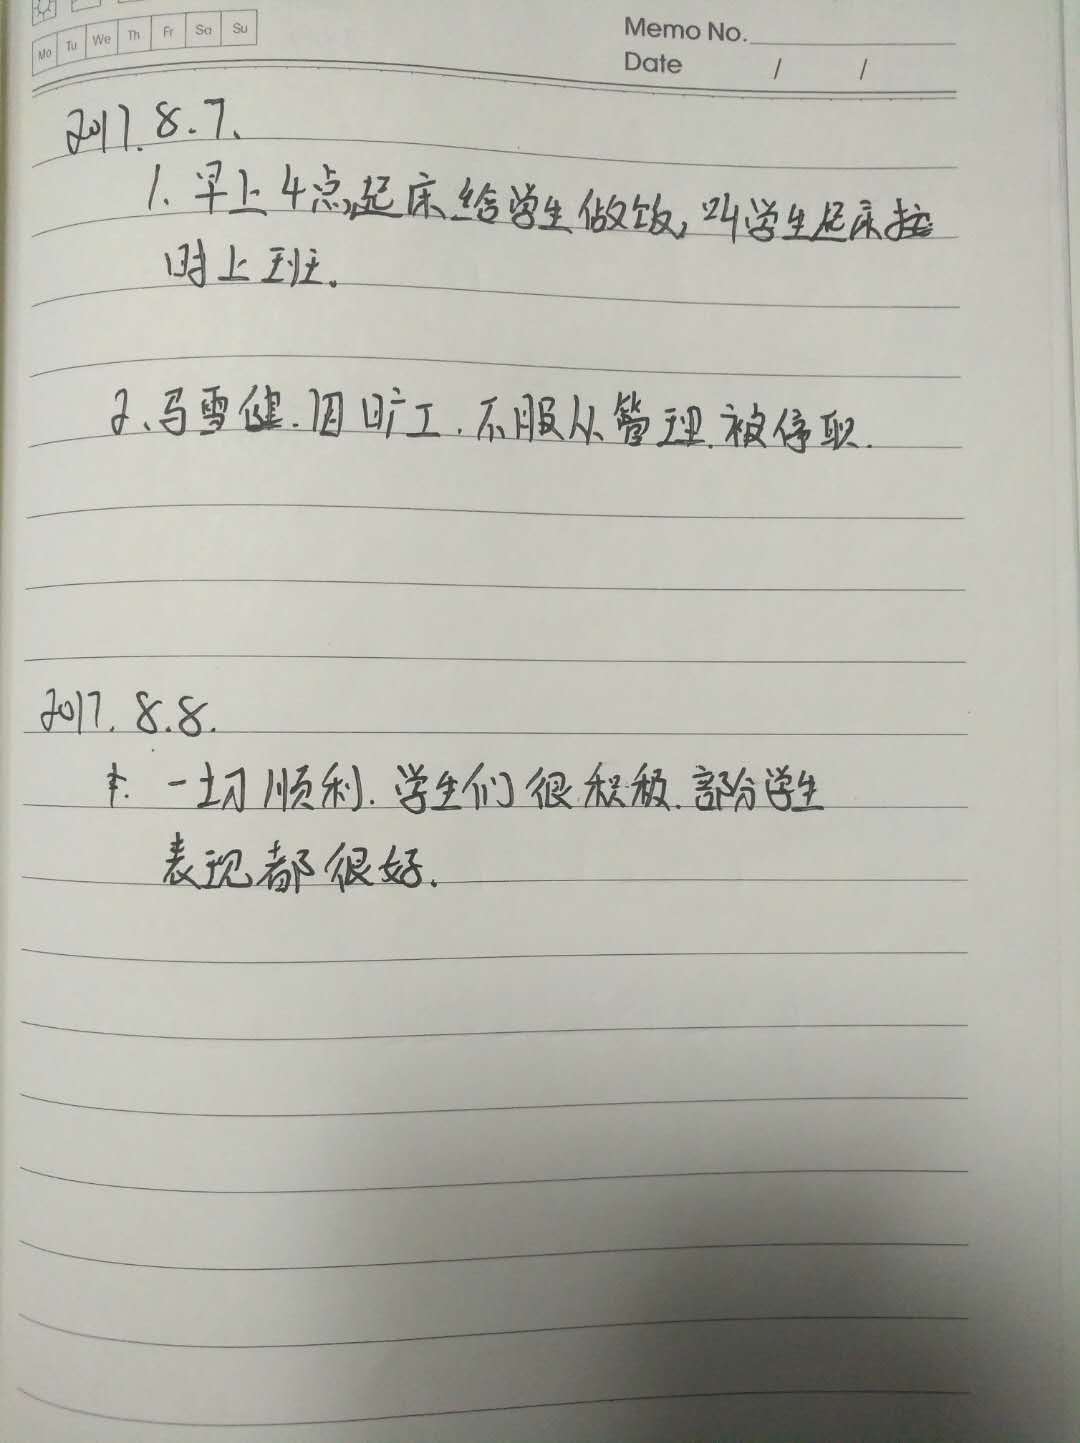 Mo Tu We Th Fr Sa Su
Memo No.
Date / /
2017.8.7、
1. 早上4点起床给学生做饭,叫学生起床按
时上班。
2、马雪健.因旷工.不服从管理.被停职.
2017.8.8.
一切顺利.学生们很积极.部分学生
表现都很好.